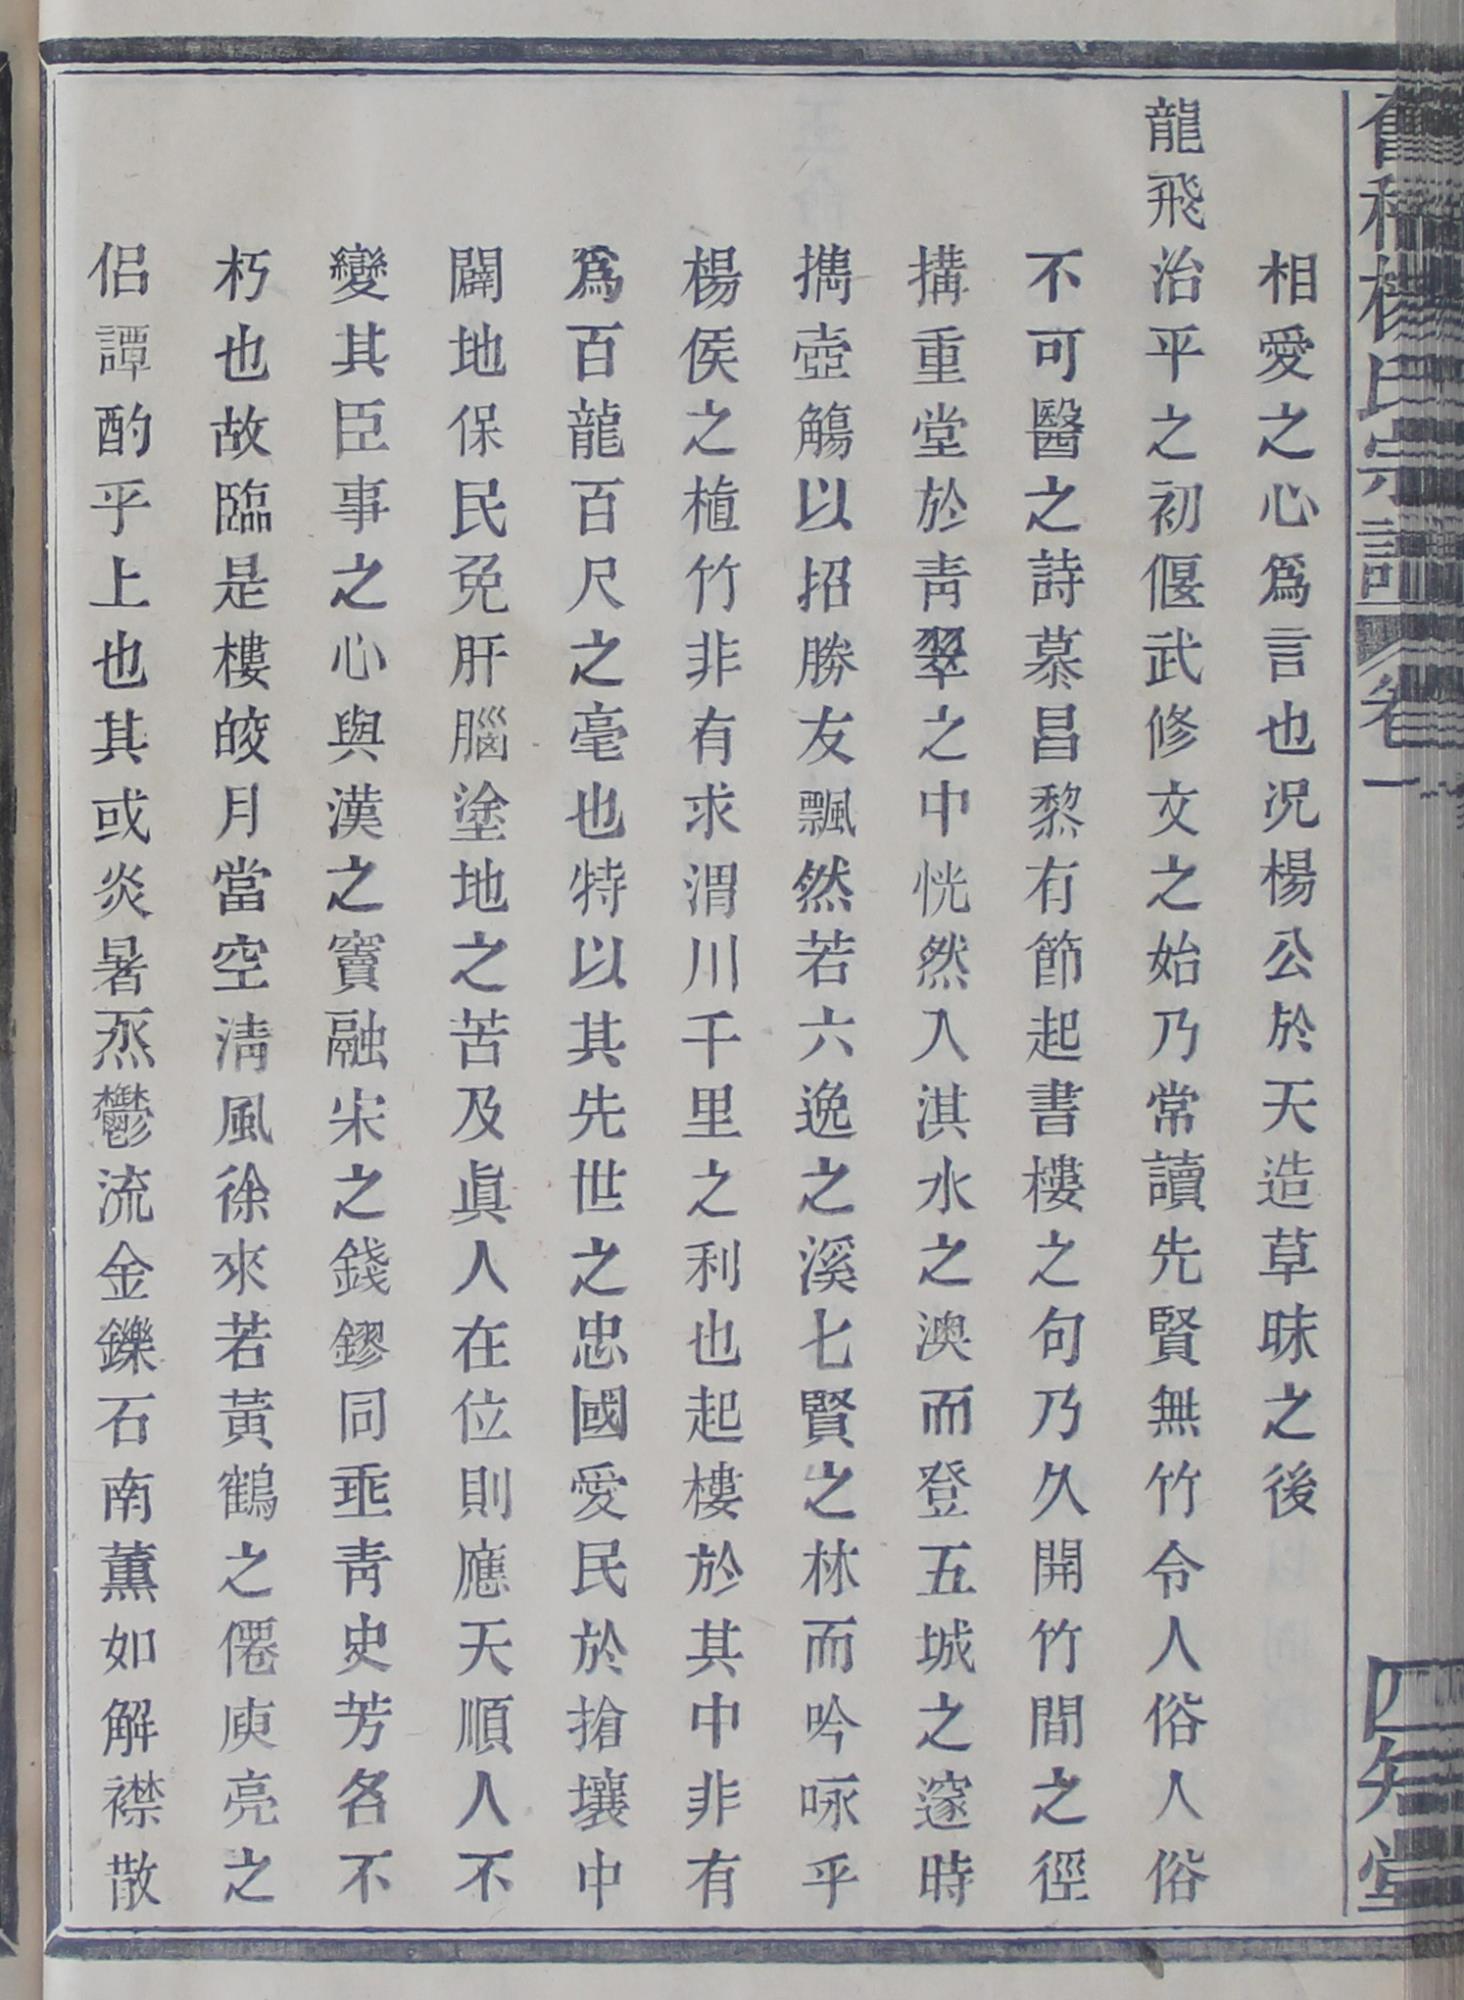 楊氏宗譜 卷一 四知堂
相愛之心為言也况楊公於天造草昧之後
龍飛治平之初偃武修文之始乃常讀先賢無竹令人俗人俗
不可醫之詩慕昌黎有節起書樓之句乃久開竹間之徑
搆重堂於青翠之中恍然入淇水之澳而登五城之邃時
擕壺觴以招勝友飄然若六逸之溪七賢之林而吟咏乎
楊侯之植竹非有求渭川千里之利也起樓於其中非有
爲百龍百尺之毫也特以其先世之忠國愛民於搶壤中
闢地保民免肝腦塗地之苦及眞人在位則應天順人不
變其臣事之心與漢之竇融宋之錢鏐同垂青史芳名不
朽也故臨是樓皎月當空清風徐來若黃鶴之僊庾亮之
侣譚酌乎上也其或炎暑烝鬱流金鑠石南薰如解襟散